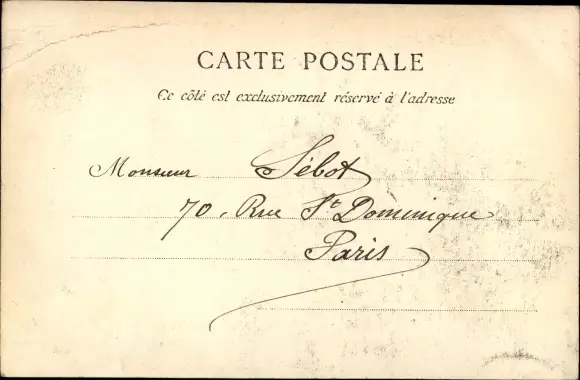 CARTE POSTALE
Ce côté est exclusivement réservé à l'adresse
Monsieur Sébot
70, Rue St Dominique
Paris